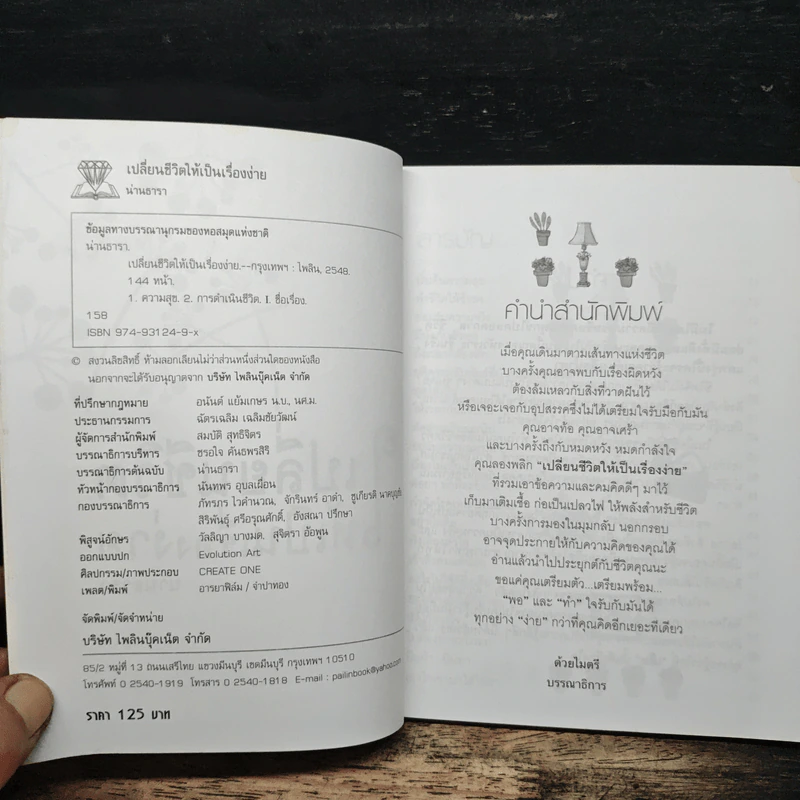 เปลี่ยนชีวิตให้เป็นเรื่องง่าย
น่านธารา
ข้อมูลทางบรรณานุกรมของหอสมุดแห่งชาติ
น่านธารา.
เปลี่ยนชีวิตให้เป็นเรื่องง่าย.--กรุงเทพฯ : ไพลิน, 2548.
144 หน้า.
1. ความสุข. 2. การดำเนินชีวิต. I. ชื่อเรื่อง.
158
ISBN 974-93124-9-x
© สงวนลิขสิทธิ์ ห้ามลอกเลียนไม่ว่าส่วนหนึ่งส่วนใดของหนังสือ
นอกจากจะได้รับอนุญาตจาก บริษัท ไพลินบุ๊คเน็ต จำกัด
ที่ปรึกษากฎหมาย อนันต์ แย้มเกษร น.บ., นศ.ม.
ประธานกรรมการ ฉัตรเฉลิม เฉลิมชัยวัฒน์
ผู้จัดการสำนักพิมพ์ สมบัติ สุทธิจิตร
บรรณาธิการบริหาร ชรอใจ คันธพรสิริ
บรรณาธิการต้นฉบับ น่านธารา
หัวหน้ากองบรรณาธิการ นันทพร อุบลเผื่อน
กองบรรณาธิการ ภัทรภร ไวคำนวณ, จักรินทร์ อาดำ, ชูเกียรติ
สิริพันธุ์ ศรีอรุณศักดิ์, อังสณา ปรึกษา
พิสูจน์อักษร วัลลิญา บางมด, สุจิตรา อ้อพูน
ออกแบบปก Evolution Art
ศิลปกรรม/ภาพประกอบ CREATE ONE
เพลต/พิมพ์ อารยาฟิล์ม / จำปาทอง
จัดพิมพ์/จัดจำหน่าย
บริษัท ไพลินบุ๊คเน็ต จำกัด
85/2 หมู่ที่ 13 ถนนเสรีไทย แขวงมีนบุรี เขตมีนบุรี กรุงเทพฯ 10510
โทรศัพท์ 0 2540-1919 โทรสาร 0 2540-1818 E-mail : pailinbook@yahoo.com
ราคา 125 บาท
คำนำสำนักพิมพ์
เมื่อคุณเดินมาตามเส้นทางแห่งชีวิต
บางครั้งคุณอาจพบกับเรื่องผิดหวัง
ต้องล้มเหลวกับสิ่งที่วาดฝันไว้
หรือเจอะเจอกับอุปสรรคซึ่งไม่ได้เตรียมใจรับมือกับมัน
คุณอาจท้อ คุณอาจเศร้า
และบางครั้งถึงกับหมดหวัง หมดกำลังใจ
คุณลองพลิก "เปลี่ยนชีวิตให้เป็นเรื่องง่าย"
ที่รวมเอาข้อความและคมคิดดีๆ มาไว้
เก็บมาเติมเชื้อ ก่อเป็นเปลวไฟ ให้พลังสำหรับชีวิต
บางครั้งการมองในมุมกลับ นอกกรอบ
อาจจุดประกายให้กับความคิดของคุณได้
อ่านแล้วนำไปประยุกต์กับชีวิตคุณนะ
ขอแค่คุณเตรียมตัว...เตรียมพร้อม...
"พอ" และ "ทำ" ใจรับกับมันได้
ทุกอย่าง "ง่าย" กว่าที่คุณคิดอีกเยอะทีเดียว
ด้วยไมตรี
บรรณาธิการ